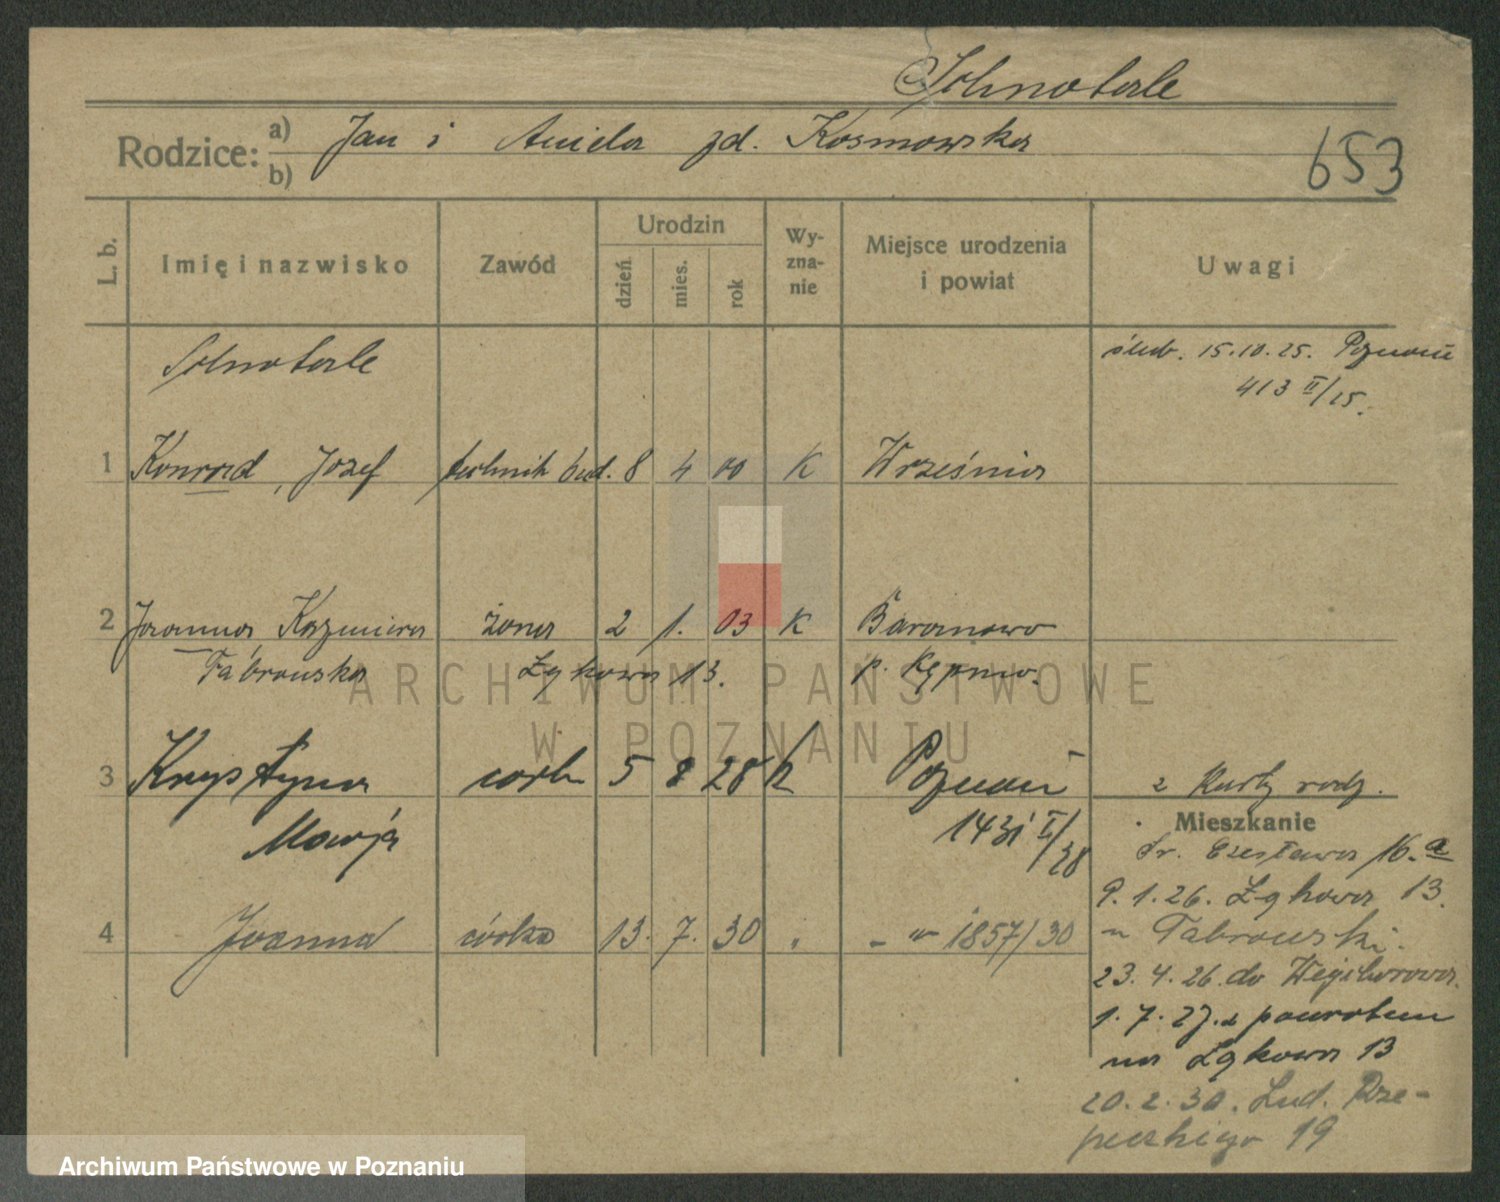 Schnoberle
Rodzice: a) Jan i Aniela zd. Kosmowska
b)
653
L. b. Imię i nazwisko Zawód Urodzin dzień mies. rok Wy-zna-nie Miejsce urodzenia i powiat Uwagi
Schnoberle ślub. 15.10.25. Poznań
413 II/25.
1 Konrad, Józef technik bud. 8 4 00 K Września
2 Joanna Kazimiera żona 2 1. 03 K Baranowo
Fabrowska Łąkowa 13. p. Kępno.
3 Krystyna córk 5 8 28 k Poznań z Karty rodz.
Marja 1431 I/28
Mieszkanie
Czesława 16. a
9.1.26. Łąkowa 13.
4 Joanna córka 13. 7. 30 " - " - 1857/30
u Fabrowski.
23.4.26. do Wejherowa.
1.7.27. z powrotem
na Łąkowa 13
20.2.30. Lud. Rze-
peckiego 19
ARCHIWUM PAŃSTWOWE
W POZNANIU
Archiwum Państwowe w Poznaniu